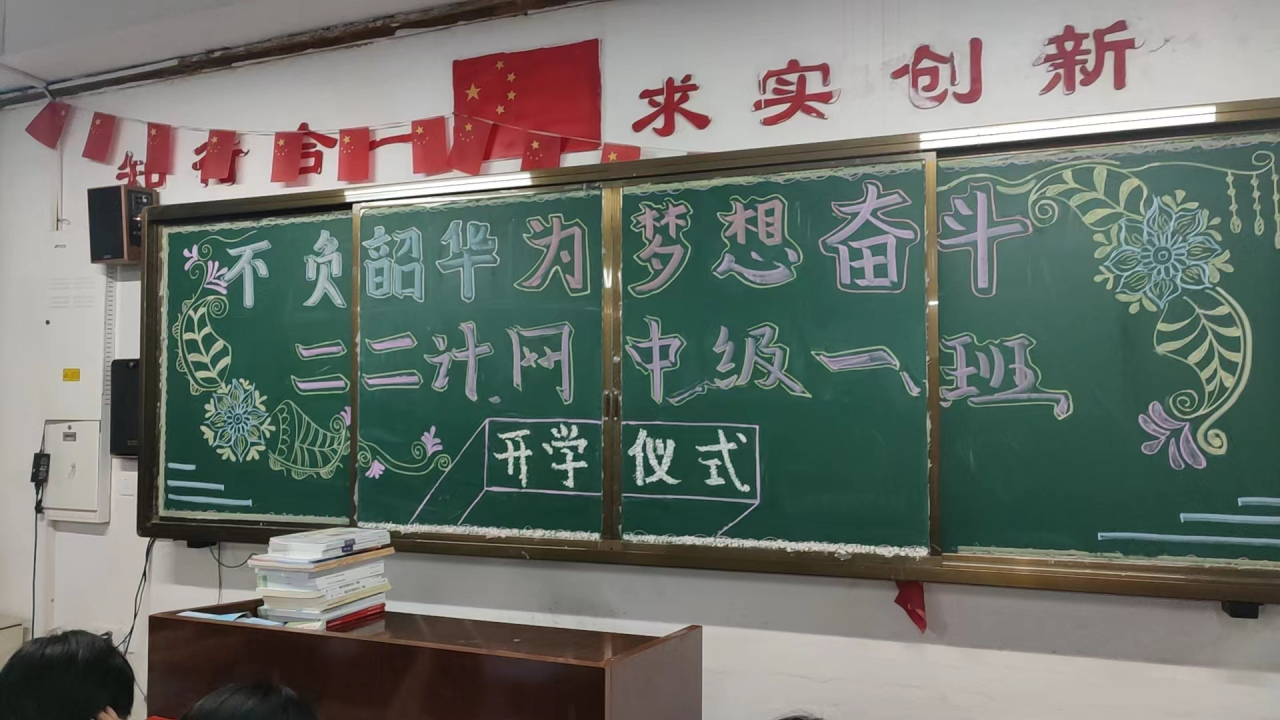 知行合一 求实创新
不负韶华为梦想奋斗
二二计网中级一、班
开学仪式